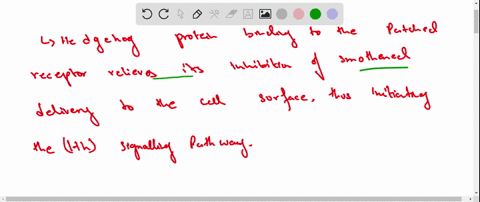 ↳ Hedgehog protein binding to the Patched
receptor relieves its inhibition of smothened
delivery to the cell surface, thus initiating
the (Hh) signalling Pathway.